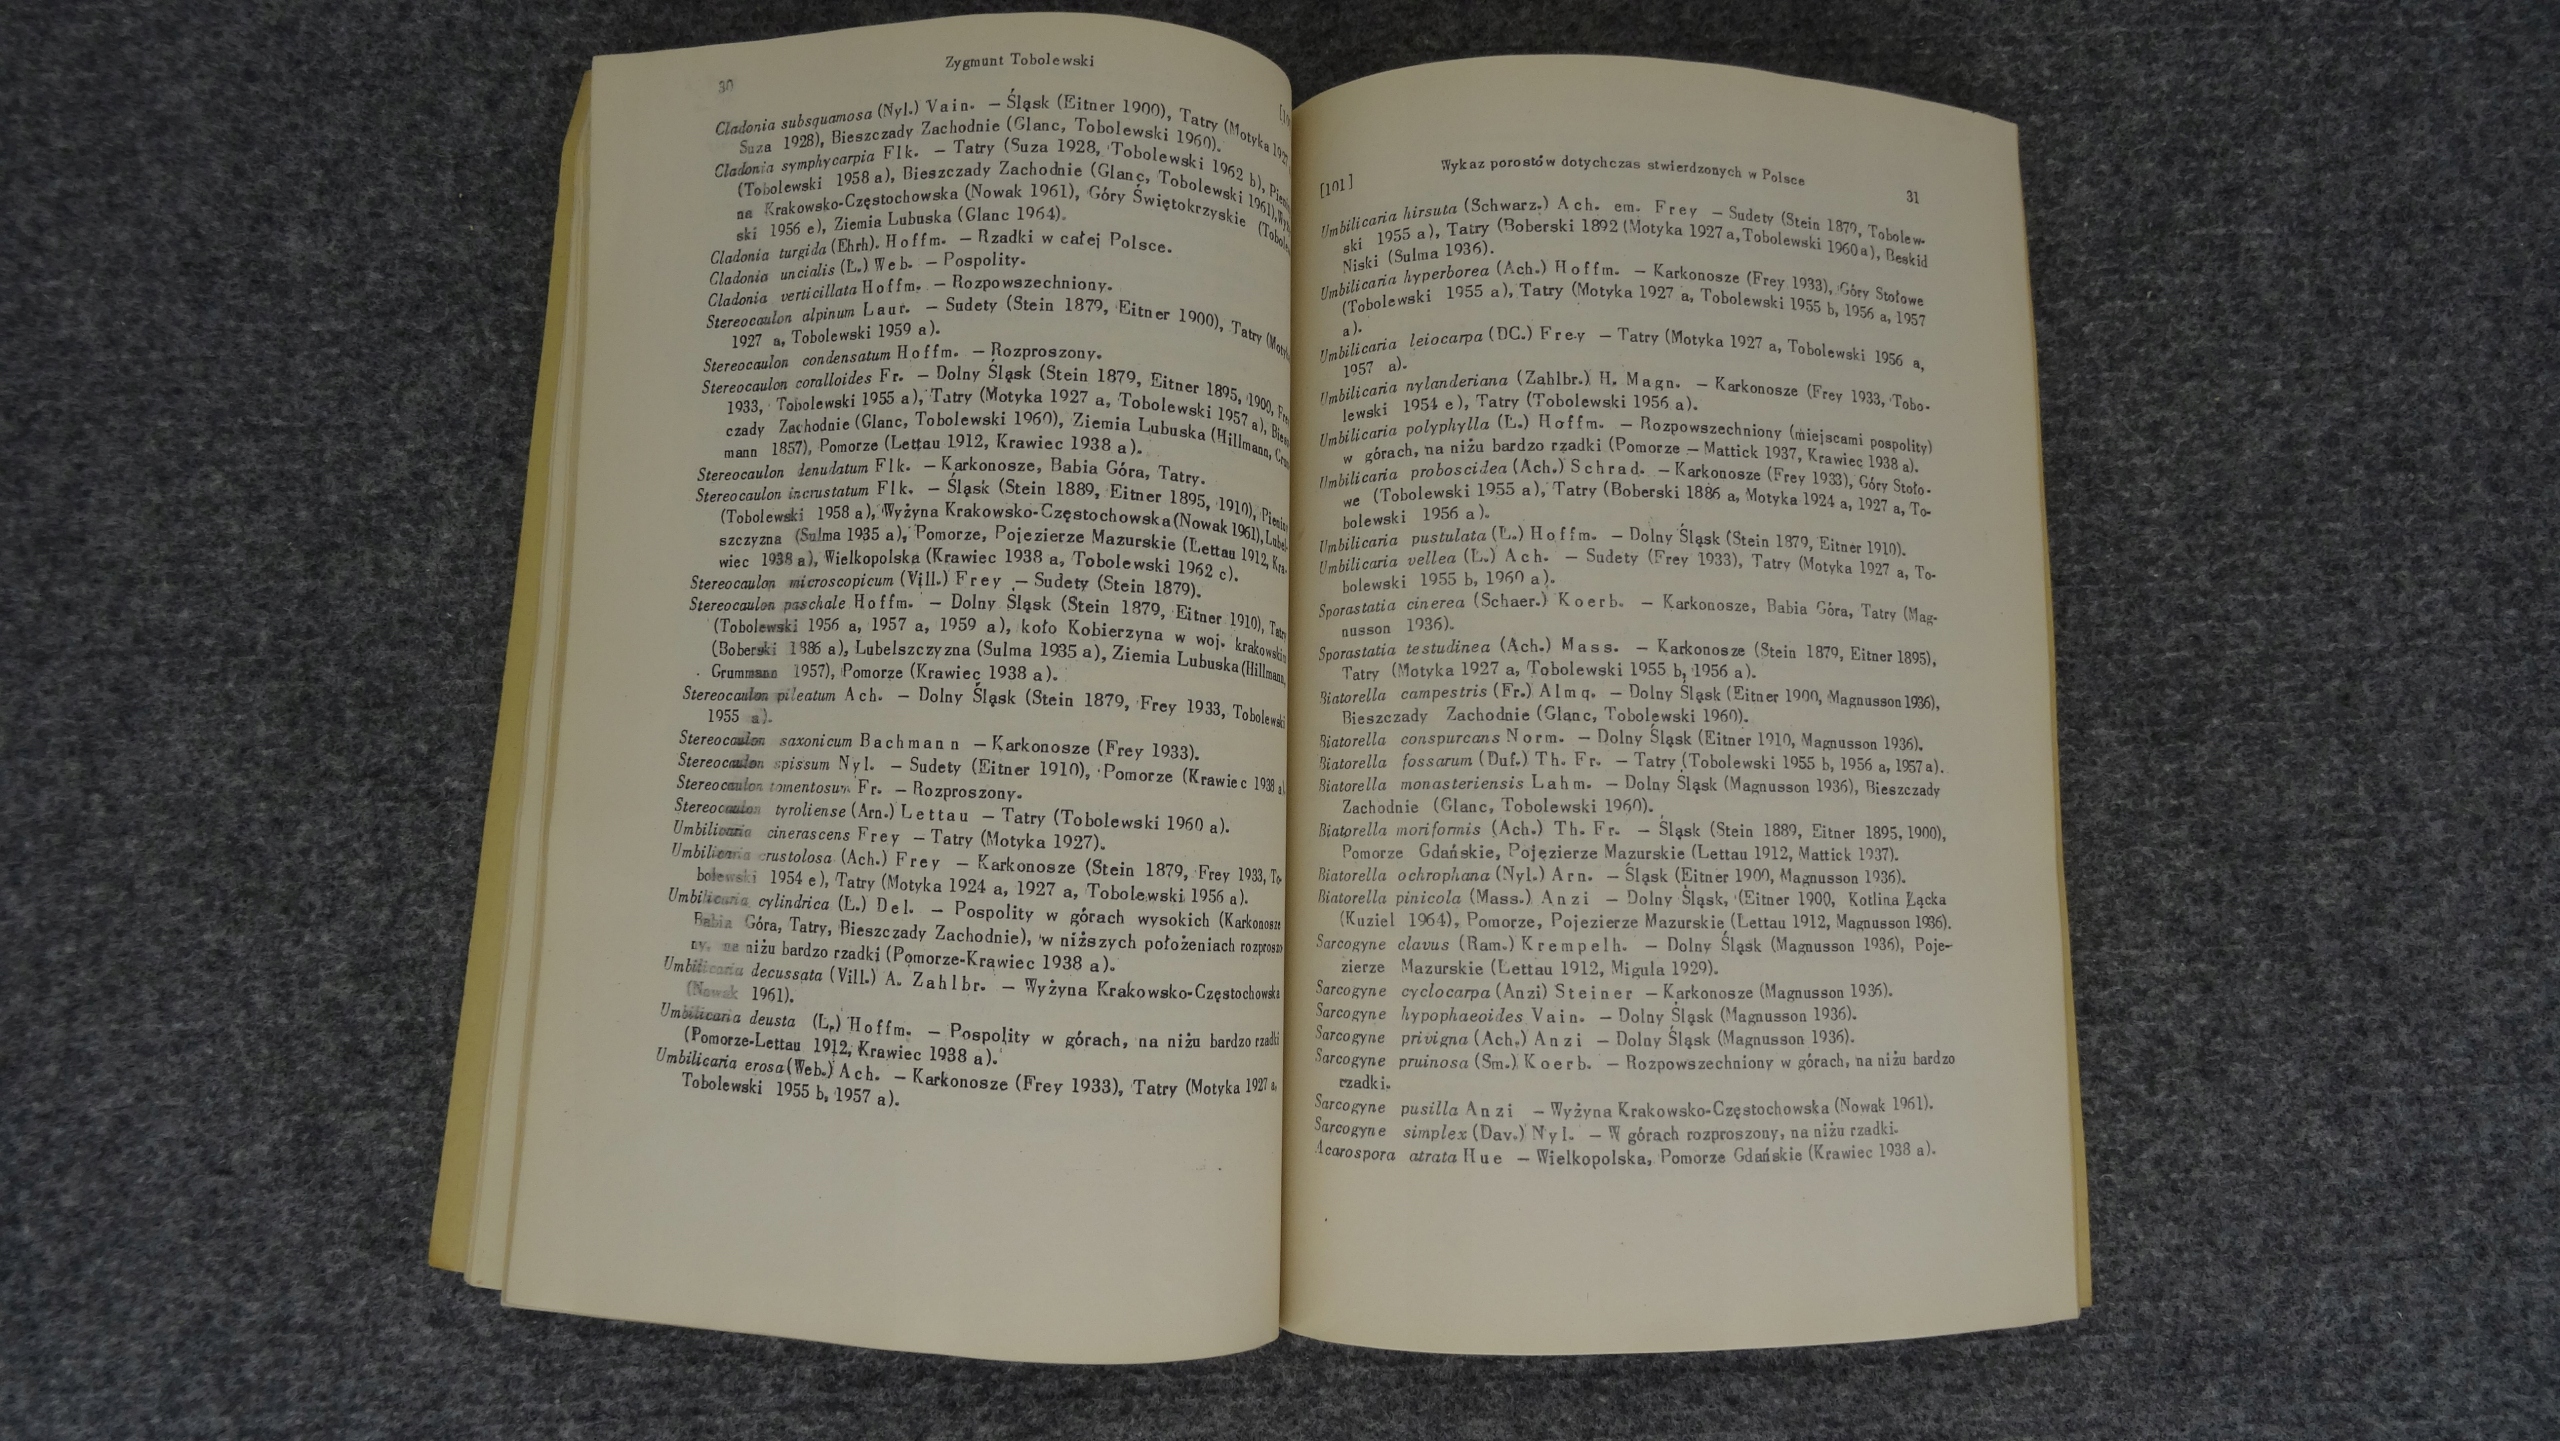 30
Zygmunt Tobolewski
Cladonia subsquamosa (Nyl.) Vain. — Śląsk (Eitner 1900), Tatry (Motyka
Suza 1928), Bieszczady Zachodnie (Glanc, Tobolewski 1960).
Cladonia symphycarpia Flk. — Tatry (Suza 1928, Tobolewski 1962 b),
(Tobolewski 1958 a), Bieszczady Zachodnie (Glanc, Tobolewski 1961),
na Krakowsko-Częstochowska (Nowak 1961), Góry Świętokrzyskie
ski 1956 e), Ziemia Lubuska (Glanc 1964).
Cladonia turgida (Ehrh). Hoffm. — Rzadki w całej Polsce.
Cladonia uncialis (L.) Web. — Pospolity.
Cladonia verticillata Hoffm. — Rozpowszechniony.
Stereocaulon alpinum Laur. — Sudety (Stein 1879, Eitner 1900), Tatry
1927 a, Tobolewski 1959 a).
Stereocaulon condensatum Hoffm. — Rozproszony.
Stereocaulon coralloides Fr. — Dolny Śląsk (Stein 1879, Eitner 1895, 1900,
1933, Tobolewski 1955 a), Tatry (Motyka 1927 a, Tobolewski 1957 a),
czady Zachodnie (Glanc, Tobolewski 1960), Ziemia Lubuska (Hillmann,
mann 1857), Pomorze (Lettau 1912, Krawiec 1938 a).
Stereocaulon denudatum Flk. — Karkonosze, Babia Góra, Tatry.
Stereocaulon incrustatum Flk. — Śląsk (Stein 1889, Eitner 1895, 1910),
(Tobolewski 1958 a), Wyżyna Krakowsko-Częstochowska (Nowak 1961), Lubel-
szczyzna (Sulma 1935 a), Pomorze, Pojezierze Mazurskie (Lettau 1912, Kra-
wiec 1938 a), Wielkopolska (Krawiec 1938 a, Tobolewski 1962 c).
Stereocaulon microscopicum (Vill.) Frey — Sudety (Stein 1879).
Stereocaulon paschale Hoffm. — Dolny Śląsk (Stein 1879, Eitner 1910), Tatry
(Tobolewski 1956 a, 1957 a, 1959 a), koło Kobierzyna w woj. krakowskim
(Boberski 1886 a), Lubelszczyzna (Sulma 1935 a), Ziemia Lubuska (Hillmann,
Grummann 1957), Pomorze (Krawiec 1938 a).
Stereocaulon pileatum Ach. — Dolny Śląsk (Stein 1879, Frey 1933, Tobolewski
1955 a).
Stereocaulon saxonicum Bachmann — Karkonosze (Frey 1933).
Stereocaulon spissum Nyl. — Sudety (Eitner 1910), Pomorze (Krawiec 1938 a).
Stereocaulon tomentosum Fr. — Rozproszony.
Stereocaulon tyroliense (Arn.) Lettau — Tatry (Tobolewski 1960 a).
Umbilicaria cinerascens Frey — Tatry (Motyka 1927).
Umbilicaria crustolosa (Ach.) Frey — Karkonosze (Stein 1879, Frey 1933, To-
bolewski 1954 e), Tatry (Motyka 1924 a, 1927 a, Tobolewski 1956 a).
Umbilicaria cylindrica (L.) Del. — Pospolity w górach wysokich (Karkonosze
Babia Góra, Tatry, Bieszczady Zachodnie), w niższych położeniach rozproszo
ny, na niżu bardzo rzadki (Pomorze-Krawiec 1938 a).
Umbilicaria decussata (Vill.) A. Zahlbr. — Wyżyna Krakowsko-Częstochowska
(Nowak 1961).
Umbilicaria deusta (L.) Hoffm. — Pospolity w górach, na niżu bardzo rzadki
(Pomorze-Lettau 1912, Krawiec 1938 a).
Umbilicaria erosa (Web.) Ach. — Karkonosze (Frey 1933), Tatry (Motyka 1927 a,
Tobolewski 1955 b, 1957 a).
[101]
Wykaz porostów dotychczas stwierdzonych w Polsce
31
Umbilicaria hirsuta (Schwarz.) Ach. em. Frey — Sudety (Stein 1879, Tobolew-
ski 1955 a), Tatry (Boberski 1892 (Motyka 1927 a, Tobolewski 1960 a), Beskid
Niski (Sulma 1936).
Umbilicaria hyperborea (Ach.) Hoffm. — Karkonosze (Frey 1933), Góry Stołowe
(Tobolewski 1955 a), Tatry (Motyka 1927 a, Tobolewski 1955 b, 1956 a, 1957
a).
Umbilicaria leiocarpa (DC.) Frey — Tatry (Motyka 1927 a, Tobolewski 1956 a,
1957 a).
Umbilicaria nylanderiana (Zahlbr.) H. Magn. — Karkonosze (Frey 1933, Tobo-
lewski 1954 e), Tatry (Tobolewski 1956 a).
Umbilicaria polyphylla (L.) Hoffm. — Rozpowszechniony (miejscami pospolity)
w górach, na niżu bardzo rzadki (Pomorze — Mattick 1937, Krawiec 1938 a).
Umbilicaria proboscidea (Ach.) Schrad. — Karkonosze (Frey 1933), Góry Stoło-
we (Tobolewski 1955 a), Tatry (Boberski 1886 a, Motyka 1924 a, 1927 a, To-
bolewski 1956 a).
Umbilicaria pustulata (L.) Hoffm. — Dolny Śląsk (Stein 1879, Eitner 1910).
Umbilicaria vellea (L.) Ach. — Sudety (Frey 1933), Tatry (Motyka 1927 a, To-
bolewski 1955 b, 1960 a).
Sporastatia cinerea (Schaer.) Koerb. — Karkonosze, Babia Góra, Tatry (Mag-
nusson 1936).
Sporastatia testudinea (Ach.) Mass. — Karkonosze (Stein 1879, Eitner 1895),
Tatry (Motyka 1927 a, Tobolewski 1955 b, 1956 a).
Biatorella campestris (Fr.) Almq. — Dolny Śląsk (Eitner 1900, Magnusson 1936),
Bieszczady Zachodnie (Glanc, Tobolewski 1960).
Biatorella conspurcans Norm. — Dolny Śląsk (Eitner 1910, Magnusson 1936).
Biatorella fossarum (Duf.) Th. Fr. — Tatry (Tobolewski 1955 b, 1956 a, 1957 a).
Biatorella monasteriensis Lahm. — Dolny Śląsk (Magnusson 1936), Bieszczady
Zachodnie (Glanc, Tobolewski 1960).
Biatorella moriformis (Ach.) Th. Fr. — Śląsk (Stein 1889, Eitner 1895, 1900),
Pomorze Gdańskie, Pojezierze Mazurskie (Lettau 1912, Mattick 1937).
Biatorella ochrophana (Nyl.) Arn. — Śląsk (Eitner 1900, Magnusson 1936).
Biatorella pinicola (Mass.) Anzi — Dolny Śląsk, (Eitner 1900, Kotlina Łącka
(Kuziel 1964), Pomorze, Pojezierze Mazurskie (Lettau 1912, Magnusson 1936).
Sarcogyne clavus (Ram.) Krempelh. — Dolny Śląsk (Magnusson 1936), Poje-
zierze Mazurskie (Lettau 1912, Migula 1929).
Sarcogyne cyclocarpa (Anzi) Steiner — Karkonosze (Magnusson 1936).
Sarcogyne hypophaeoides Vain. — Dolny Śląsk (Magnusson 1936).
Sarcogyne privigna (Ach.) Anzi — Dolny Śląsk (Magnusson 1936).
Sarcogyne pruinosa (Sm.) Koerb. — Rozpowszechniony w górach, na niżu bardzo
rzadki.
Sarcogyne pusilla Anzi — Wyżyna Krakowsko-Częstochowska (Nowak 1961).
Sarcogyne simplex (Dav.) Nyl. — W górach rozproszony, na niżu rzadki.
Acarospora atrata Hue — Wielkopolska, Pomorze Gdańskie (Krawiec 1938 a).